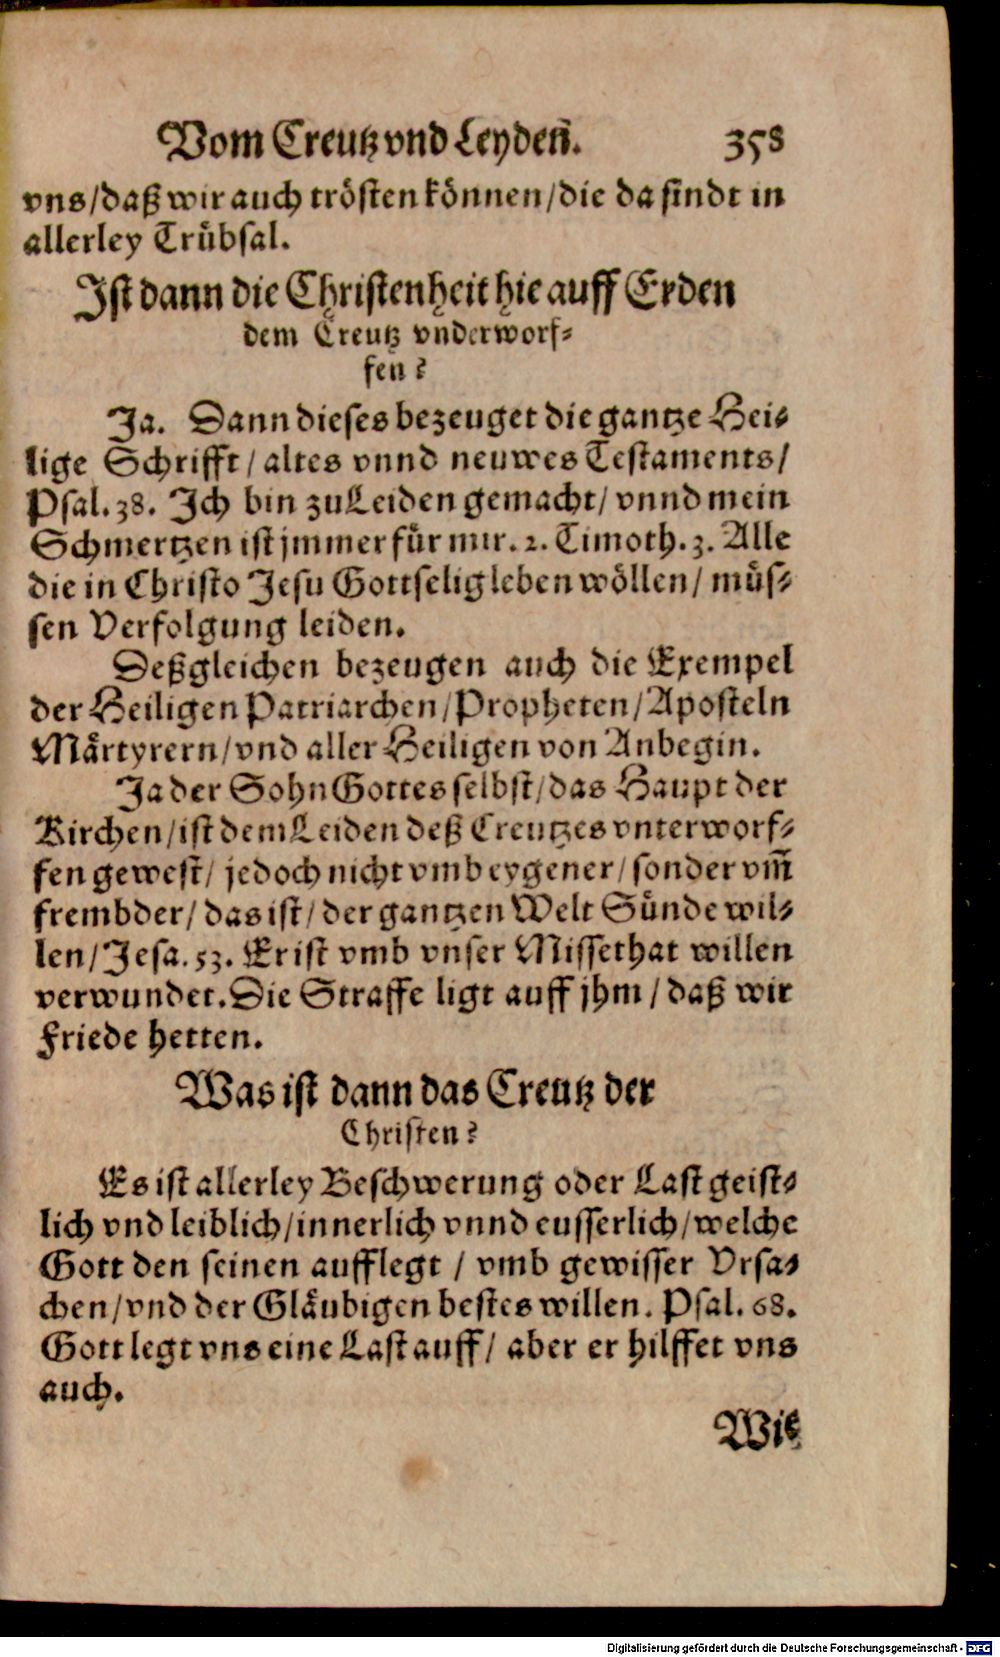 Vom Creutz vnd Leydeñ. 358
vns/daß wir auch trösten können/die da sindt in
allerley Trübsal.
Ist dann die Christenheit hie auff Erden
dem Creutz vnderworf-
fen?
Ja. Dann dieses bezeuget die gantze Hei-
lige Schrifft/altes vnnd neuwes Testaments/
Psal.38. Ich bin zu Leiden gemacht/vnnd mein
Schmertzen ist jmmer für mir. 2. Timoth.3. Alle
die in Christo Jesu Gottselig leben wöllen/müs-
sen Verfolgung leiden.
Deßgleichen bezeugen auch die Exempel
der Heiligen Patriarchen/Propheten/Aposteln
Märtyrern/vnd aller Heiligen von Anbegin.
Ja der Sohn Gottes selbst/das Haupt der
Kirchen/ist dem Leiden deß Creutzes vnterworf-
fen gewest/jedoch nicht vmb eygener/sonder vm̃
frembder/das ist/der gantzen Welt Sünde wil-
len/Jesa.53. Er ist vmb vnser Missethat willen
verwundet. Die Straffe ligt auff jhm/daß wir
Friede hetten.
Was ist dann das Creutz der
Christen?
Es ist allerley Beschwerung oder Last geist-
lich vnd leiblich/innerlich vnnd eusserlich/welche
Gott den seinen aufflegt/vmb gewisser Vrsa-
chen/vnd der Gläubigen bestes willen. Psal.68.
Gott legt vns eine Last auff/aber er hilffet vns
auch.
Wie
Digitalisierung gefördert durch die Deutsche Forschungsgemeinschaft - DFG